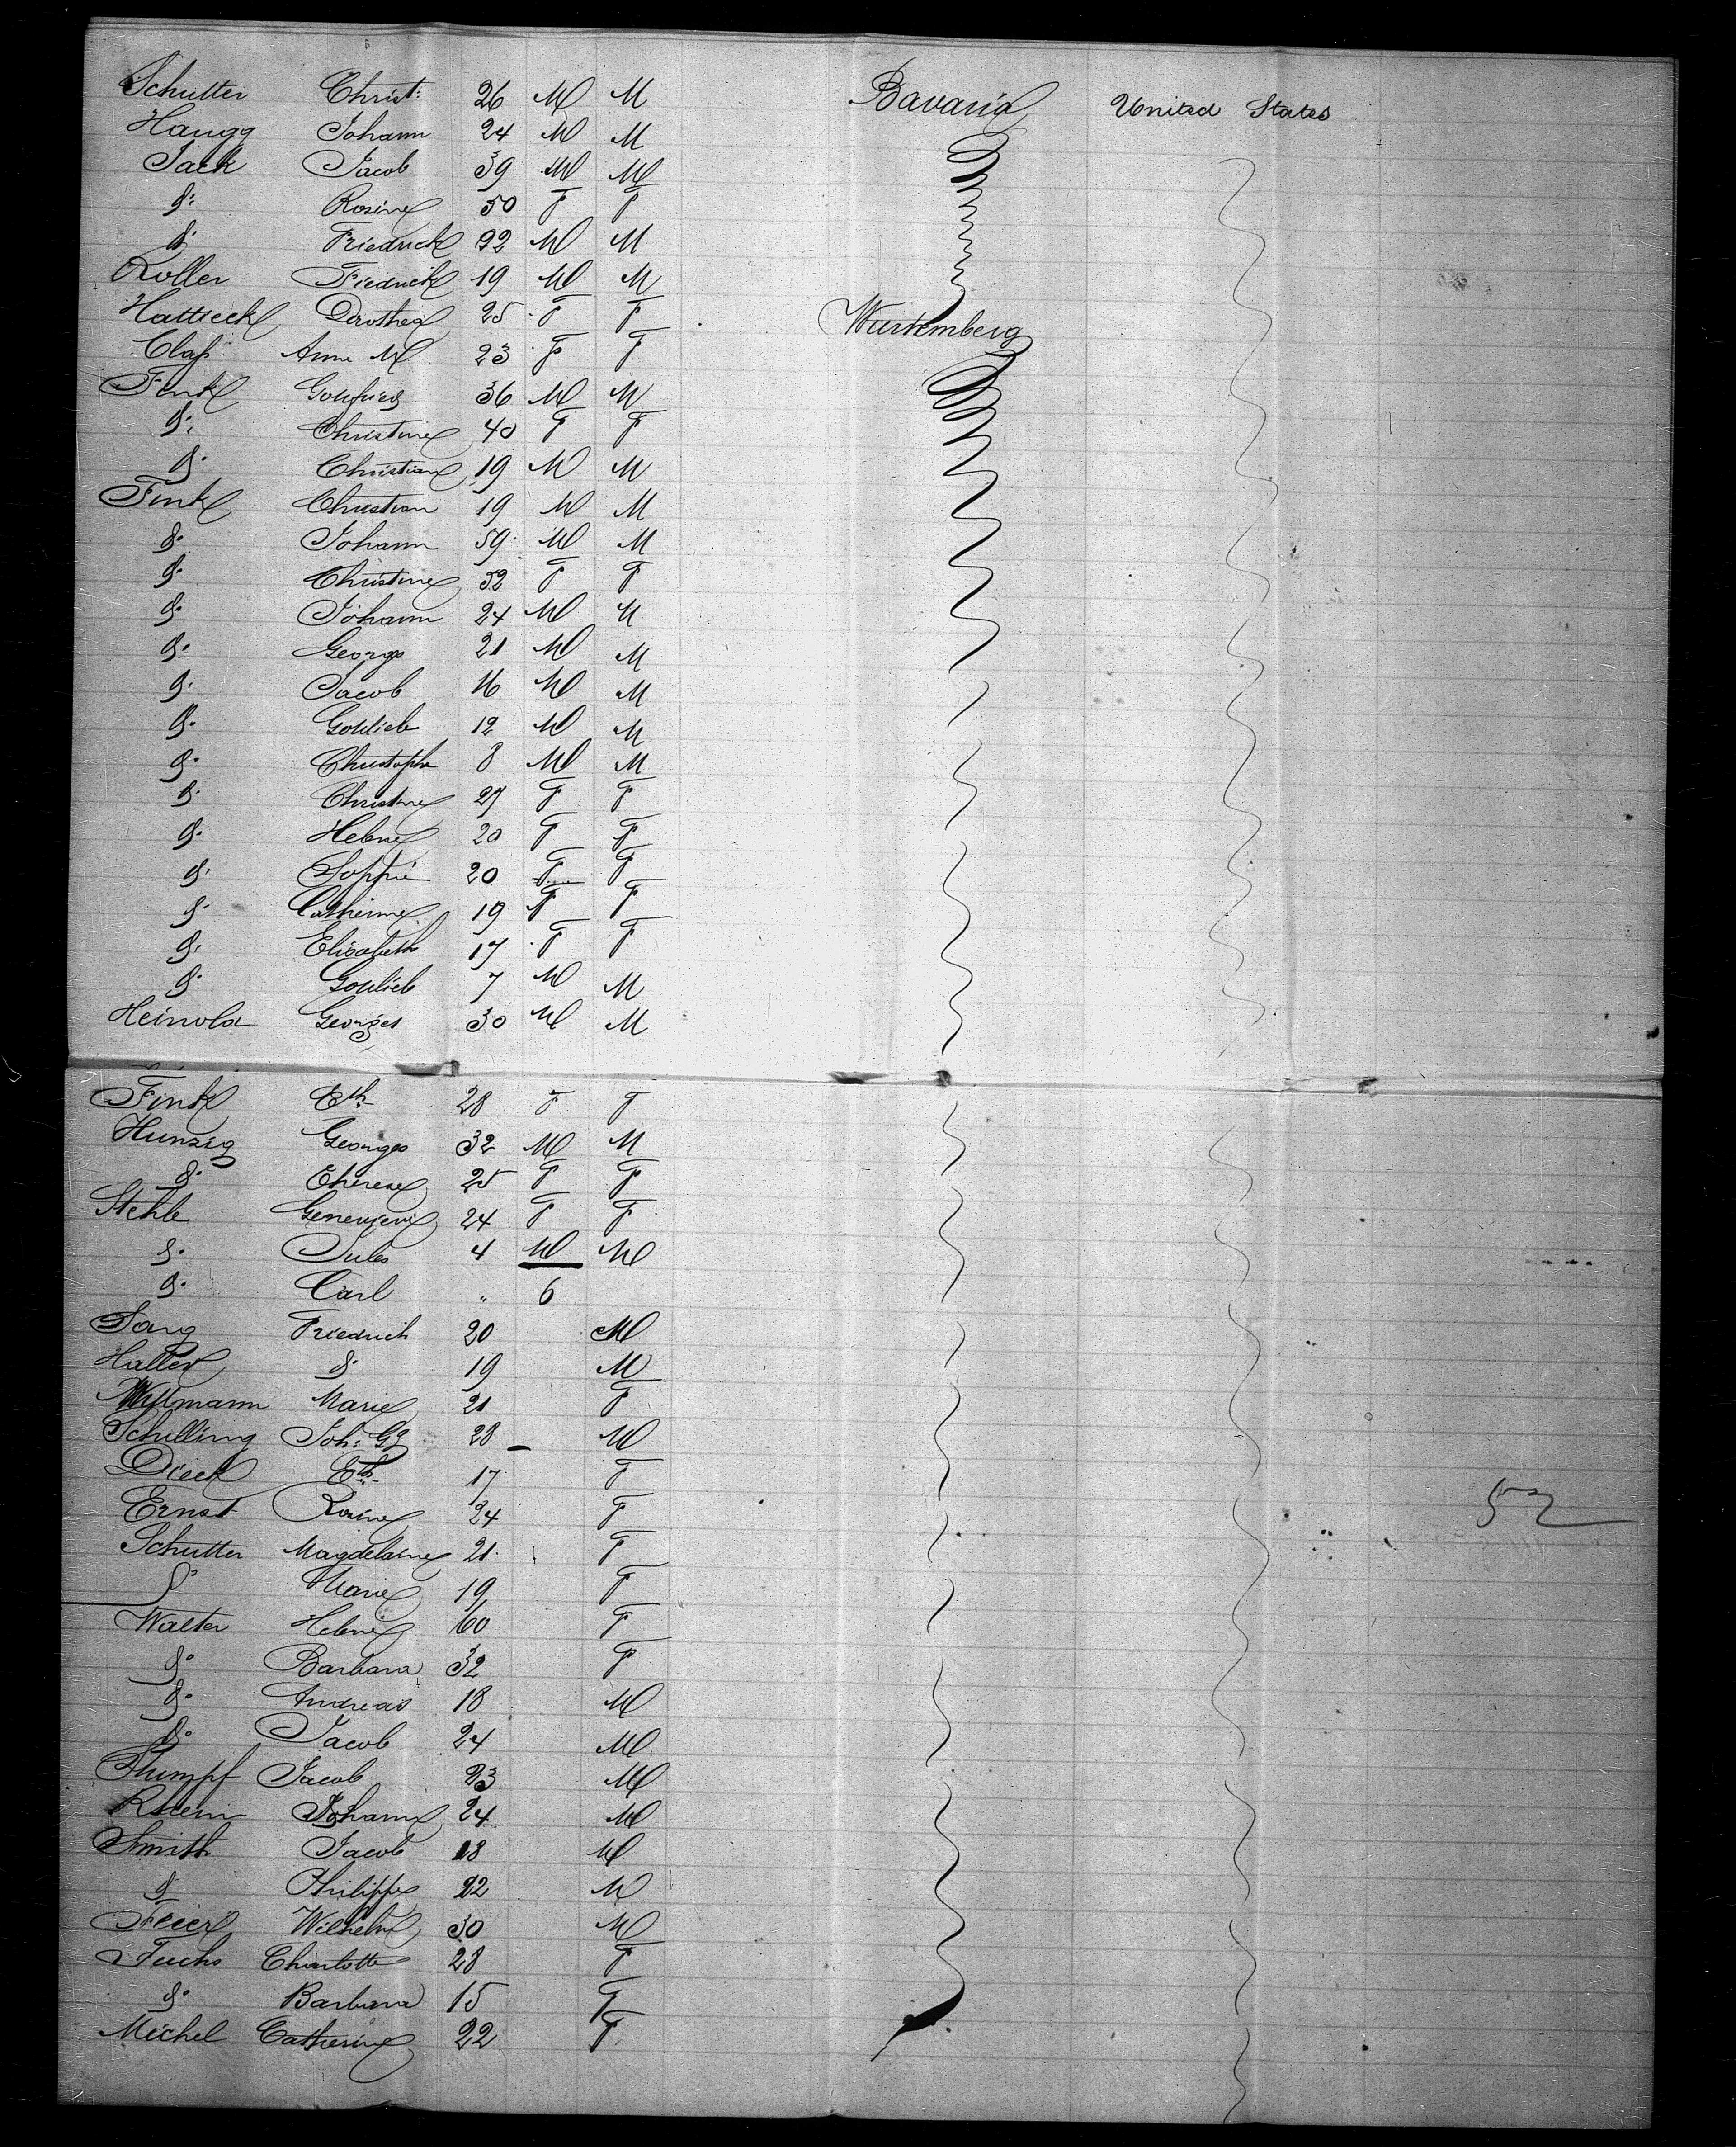 Schutter Christ: 26 M M Bavaria United States
Haugg Johann 24 M M
Jack Jacob 39 M M
do Rosine 50 F F
do Friedrick 22 M M
Roller Fiedrick 19 M M
Dorothea 25 F F Wurtemberg
Anne M 23 F F
Fink Gottfried 36 M M
do Christine 40 F F
do Christian 19 M M
Fink Christian 19 M M
do Johann 59 M M
do Christine 52 F F
do Johann 24 M M
do George 21 M M
do Jacob 16 M M
do Gottlieb 12 M M
do Christophe 8 M M
do Christine 27 F F
do Helene 20 F F
do Sophie 20 F F
do Catherine 19 F F
do Elisabeth 17 F F
do Gottlieb 7 M M
Heinold Georges 30 M M
Fink Eth 28 F F
Hunzig Georges 32 M M
do Therese 25 F F
Stehle Genevieve 24 F F
do Jules 4 M M
do Carl " 6
Sang Friedrich 20 M
Haller do 19 M
Marie 21 F
Schilling Joh: Gg 28 M
Dieck Eth 17 F
Ernst Rosine 24 F 52
Schutter Magdelaine 21 F
do Marie 19 F
Walter Helene 60 F
do Barbara 32 F
do Andreas 18 M
do Jacob 24 M
Jacob 23 M
Rhein Johann 24 M
Smith Jacob 18 M
do Philippe 22 M
Wilhelm 30 M
Fuchs Charlotte 28 F
do Barbara 15 F
Michel Catherine 22 F